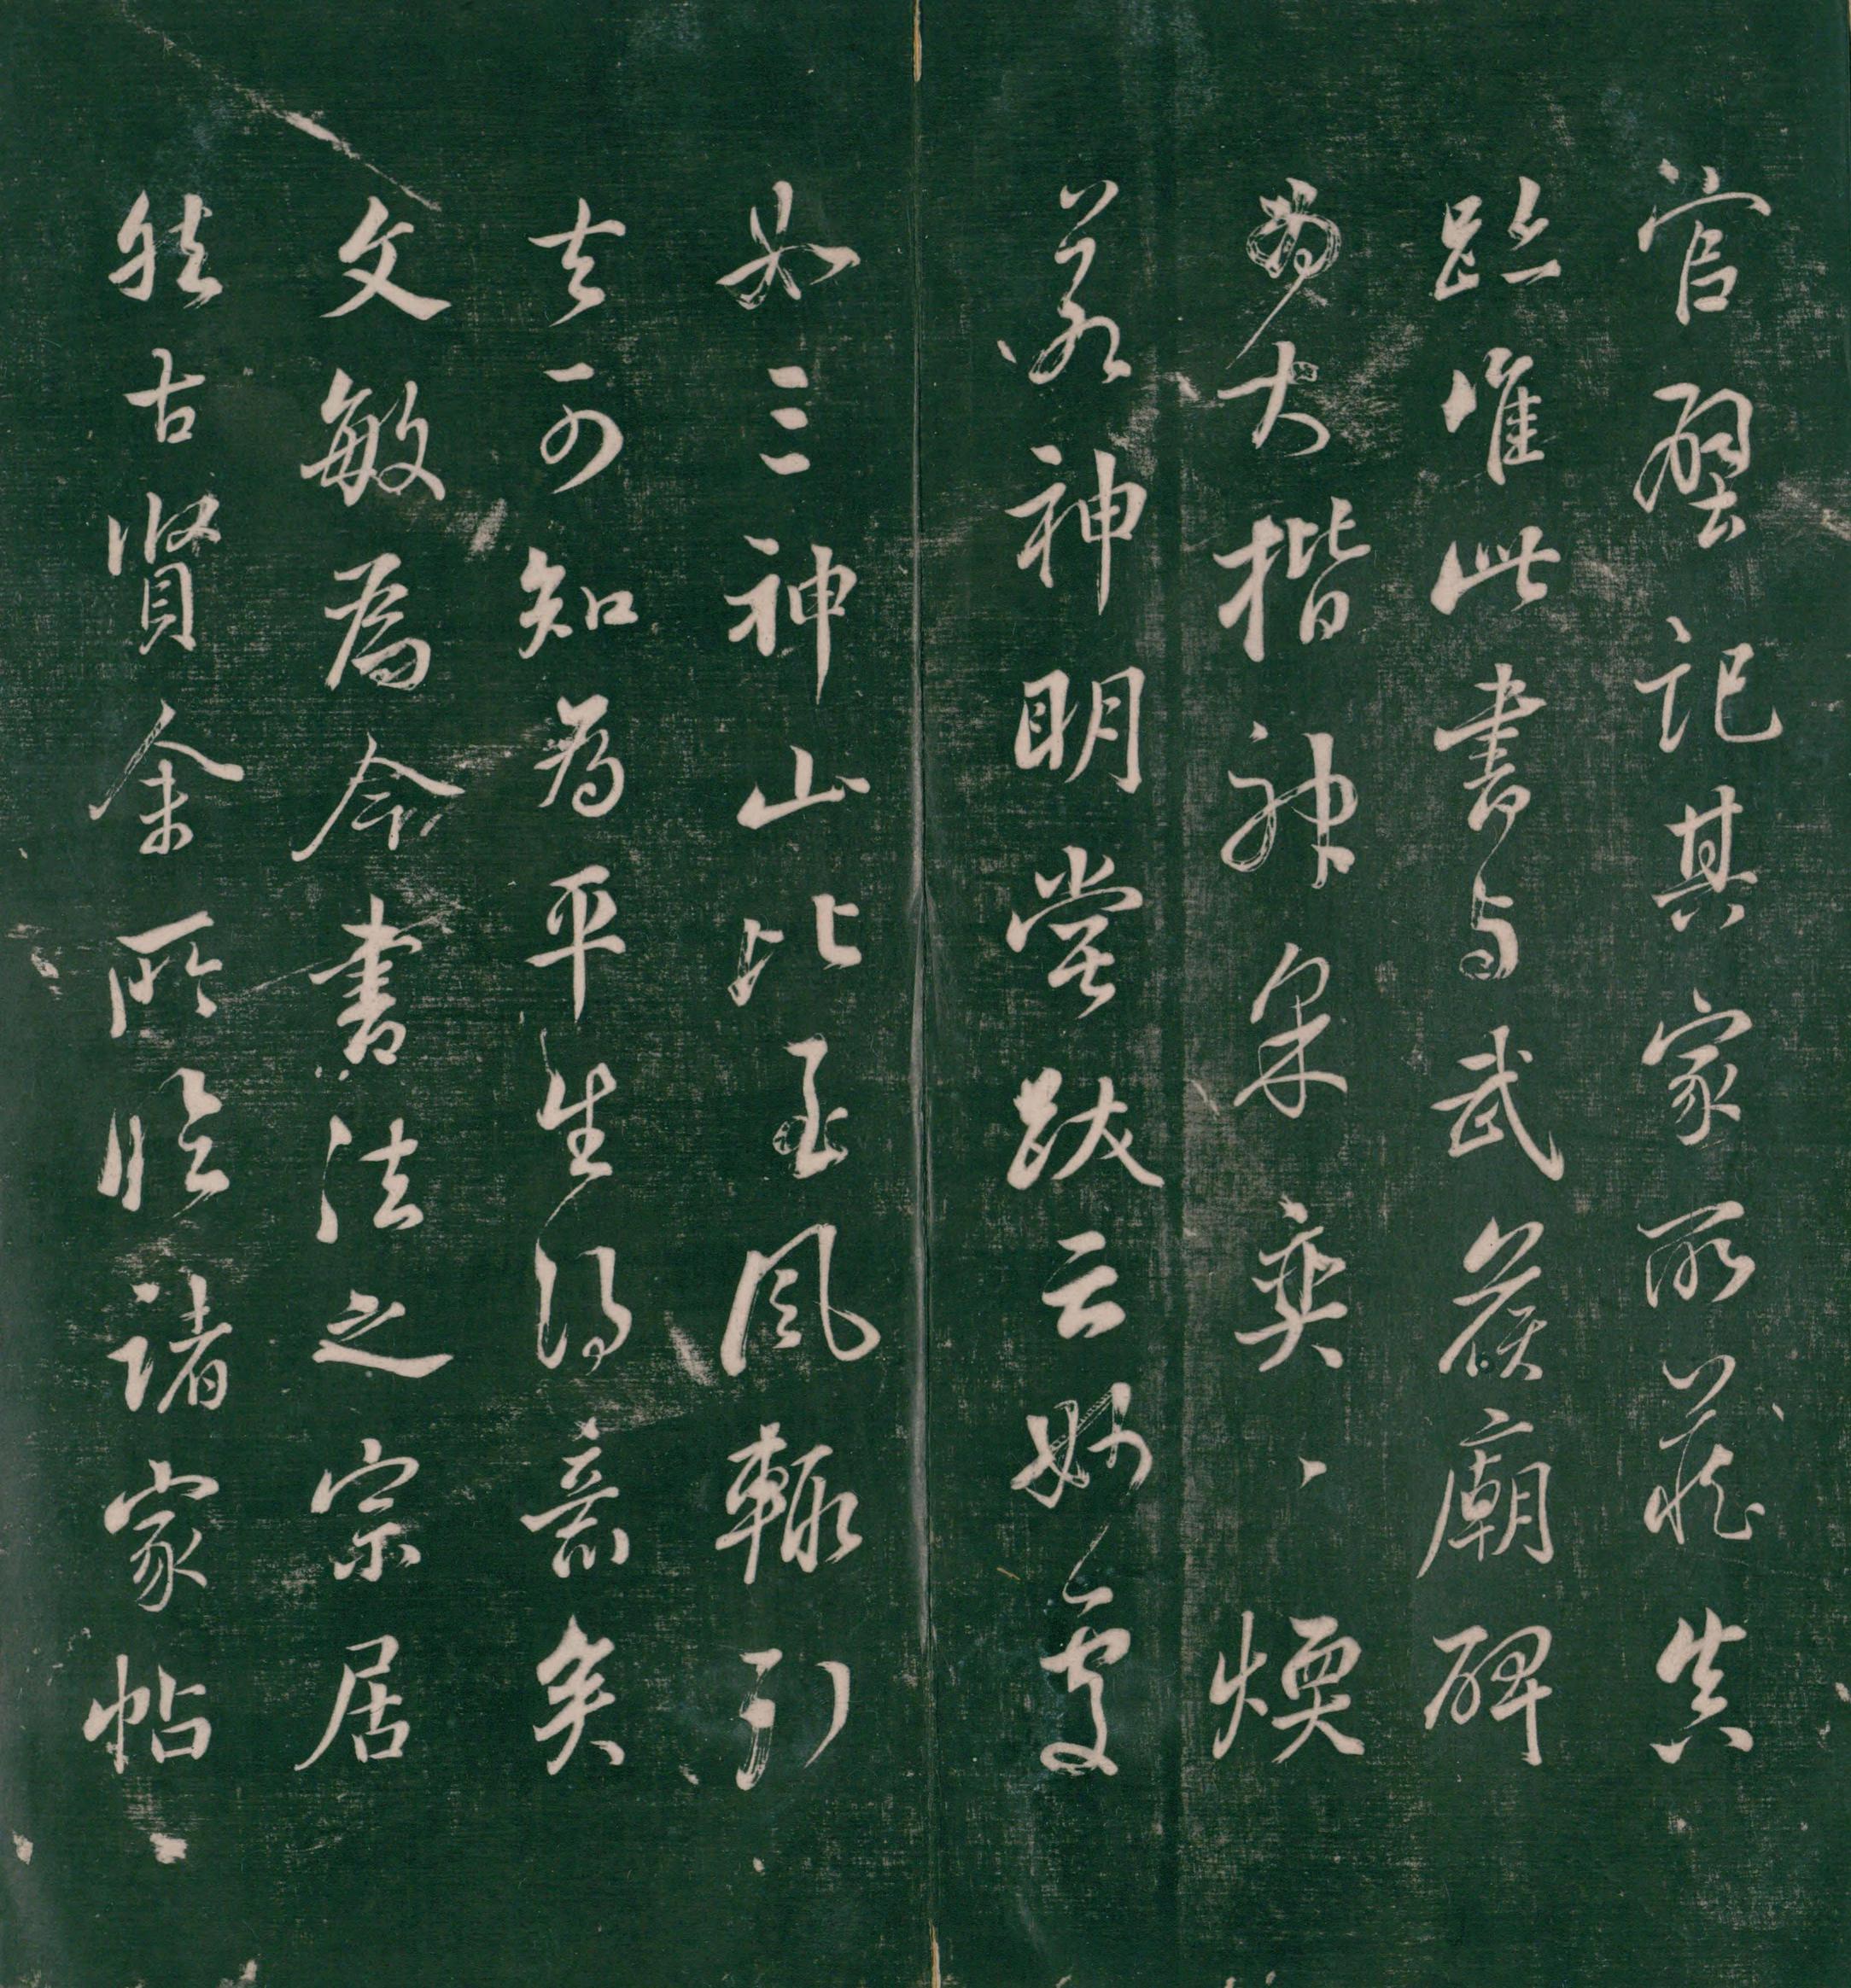 官壁記其家所藏真
跡唯此書与武侯廟碑
為大楷神采奕、煥
若神明嘗跋云妙處
如三神山比至風輒引
去可知為平生得意矣
文敏為今書法之宗居
然古賢余所臨諸家帖